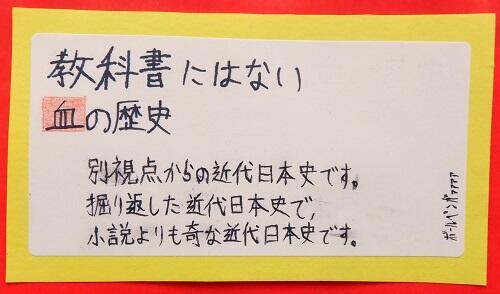 教科書にはない
血の歴史
別視点からの近代日本史です。
掘り返した近代日本史で、
小説よりも奇な近代日本史です。
ボールペン